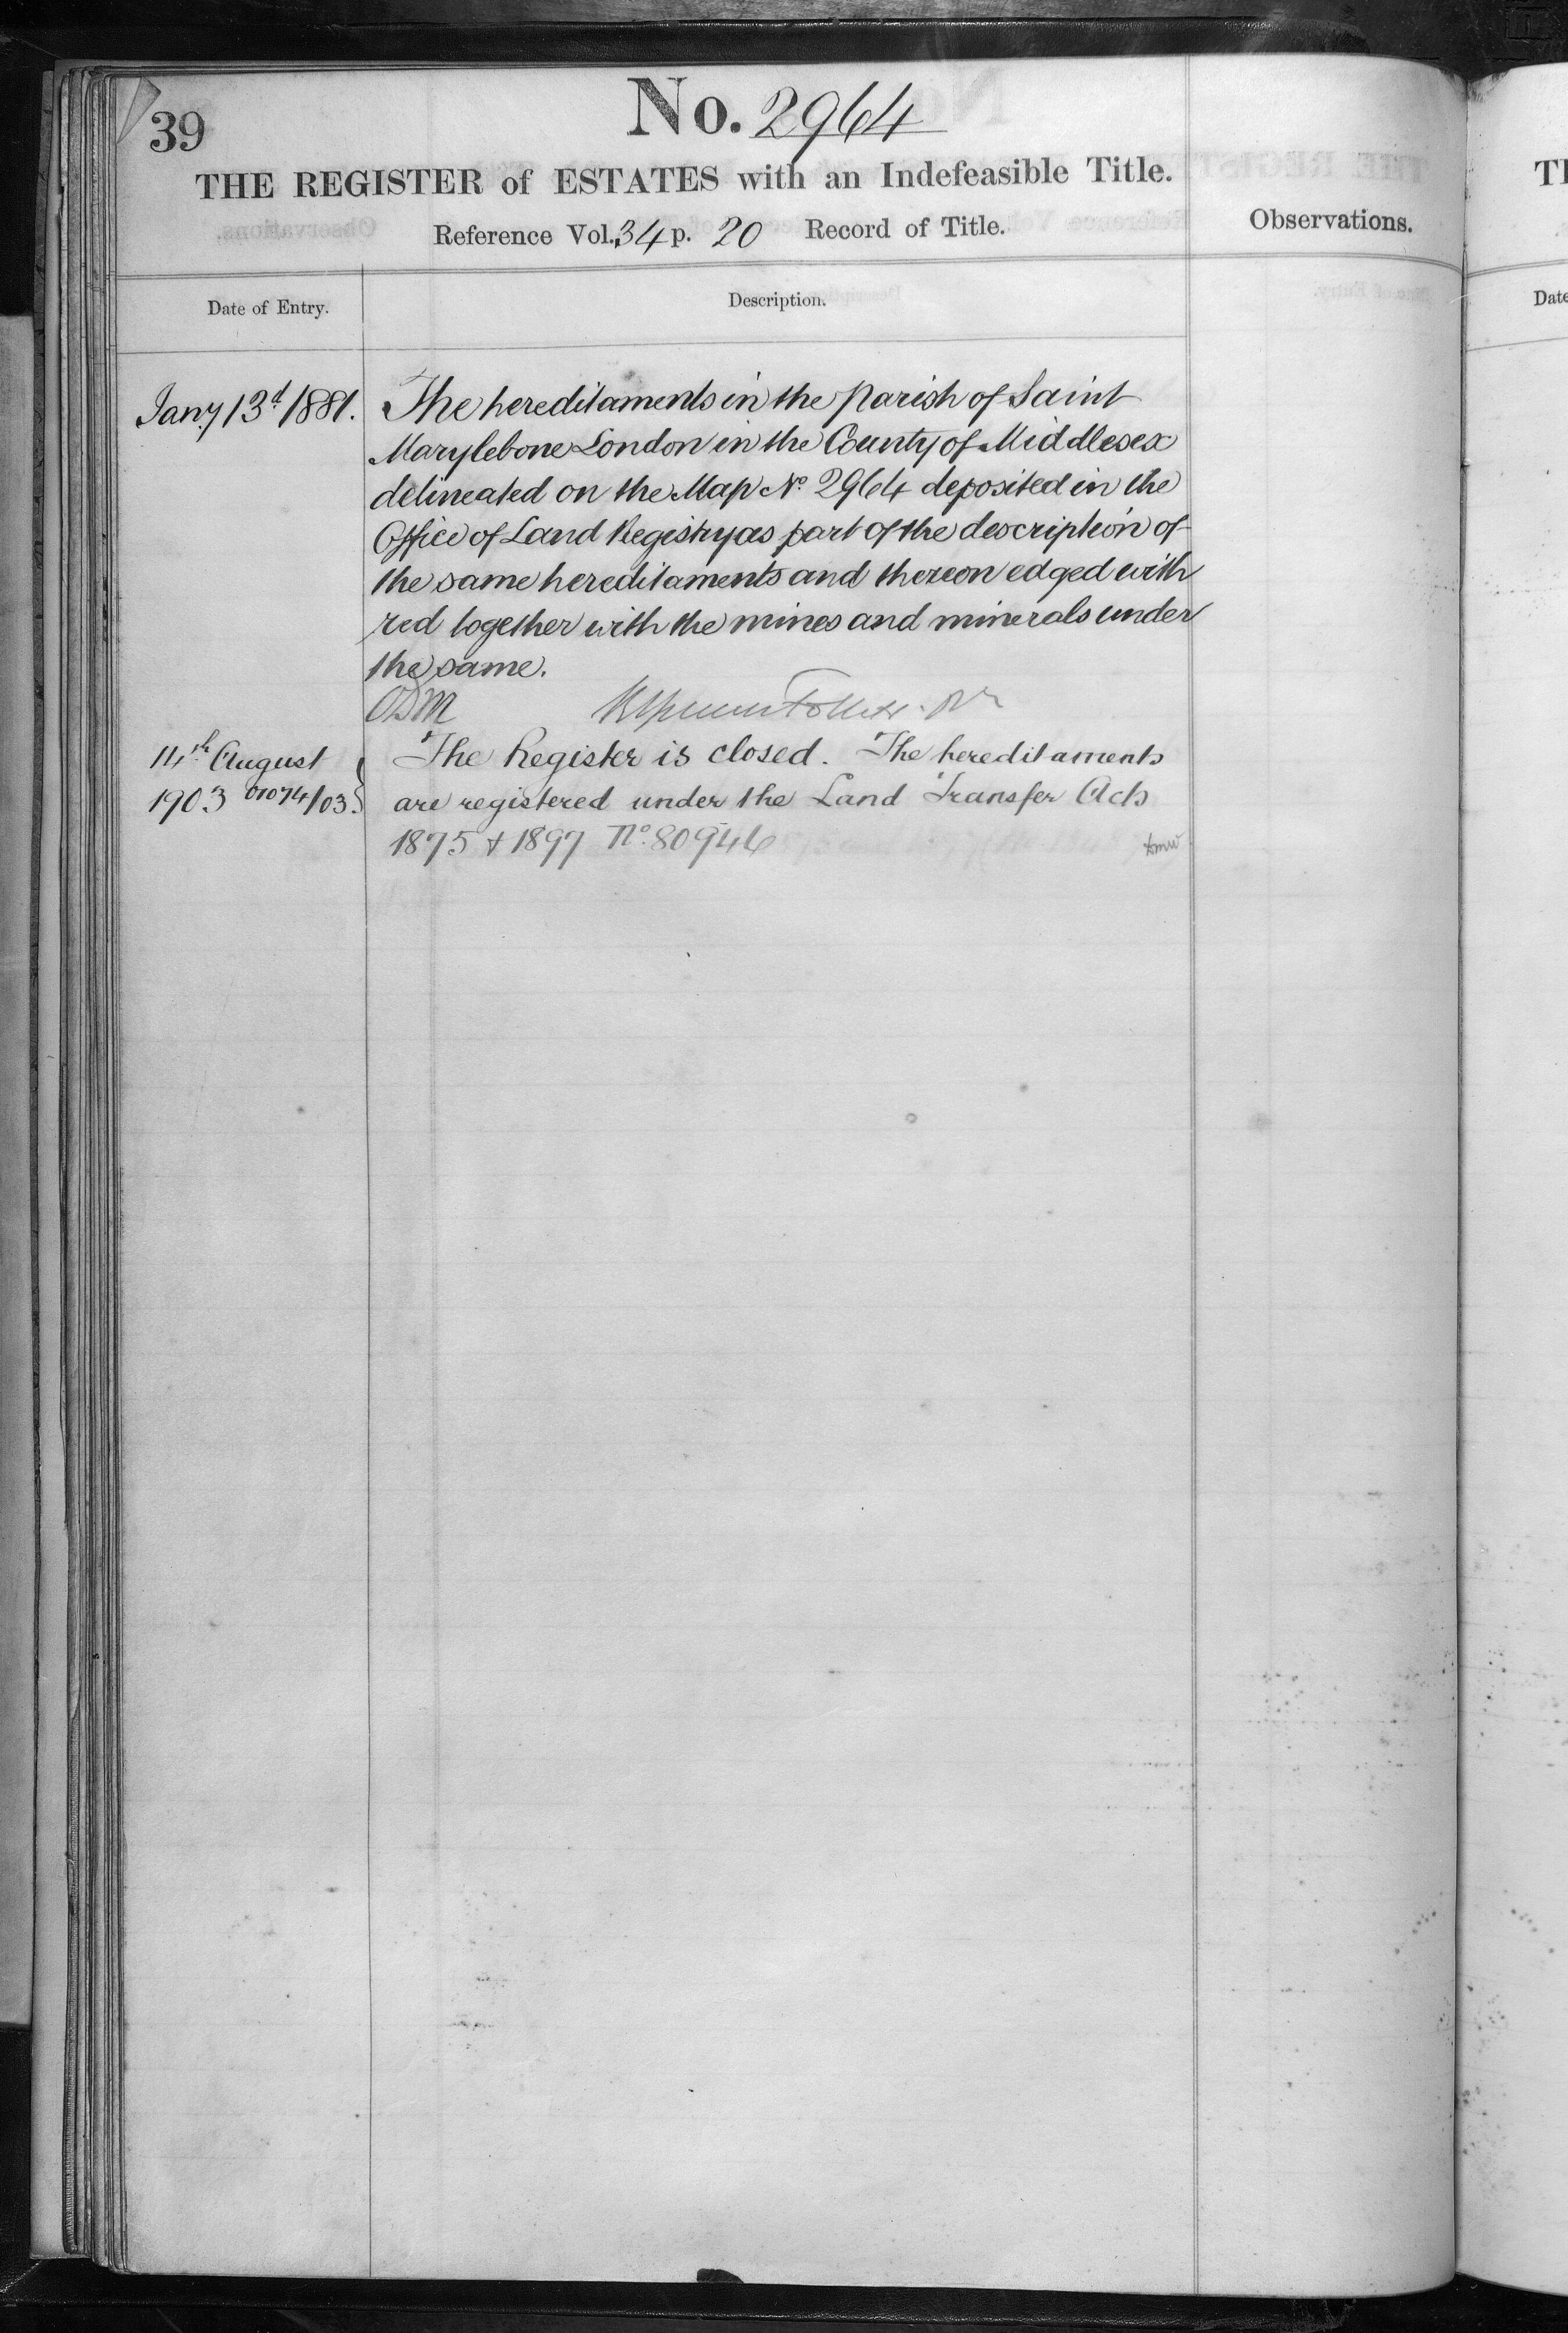 39
No. 2964
THE REGISTER of ESTATES with an Indefeasible Title.
Reference Vol. 34 p. 20 Record of Title.
Observations.
Date of Entry.
Description.
Jany 13th 1881.
The hereditaments in the parish of Saint
Marylebone London in the County of Middlesex
delineated on the Map No. 2964 deposited in the
Office of Land Registry as part of the description of
the same hereditaments and thereon edged with
red together with the mines and minerals under
the same.
14th August
1903
The Register is closed. The hereditaments
are registered under the Land Transfer Acts
1875 & 1897 No. 80946